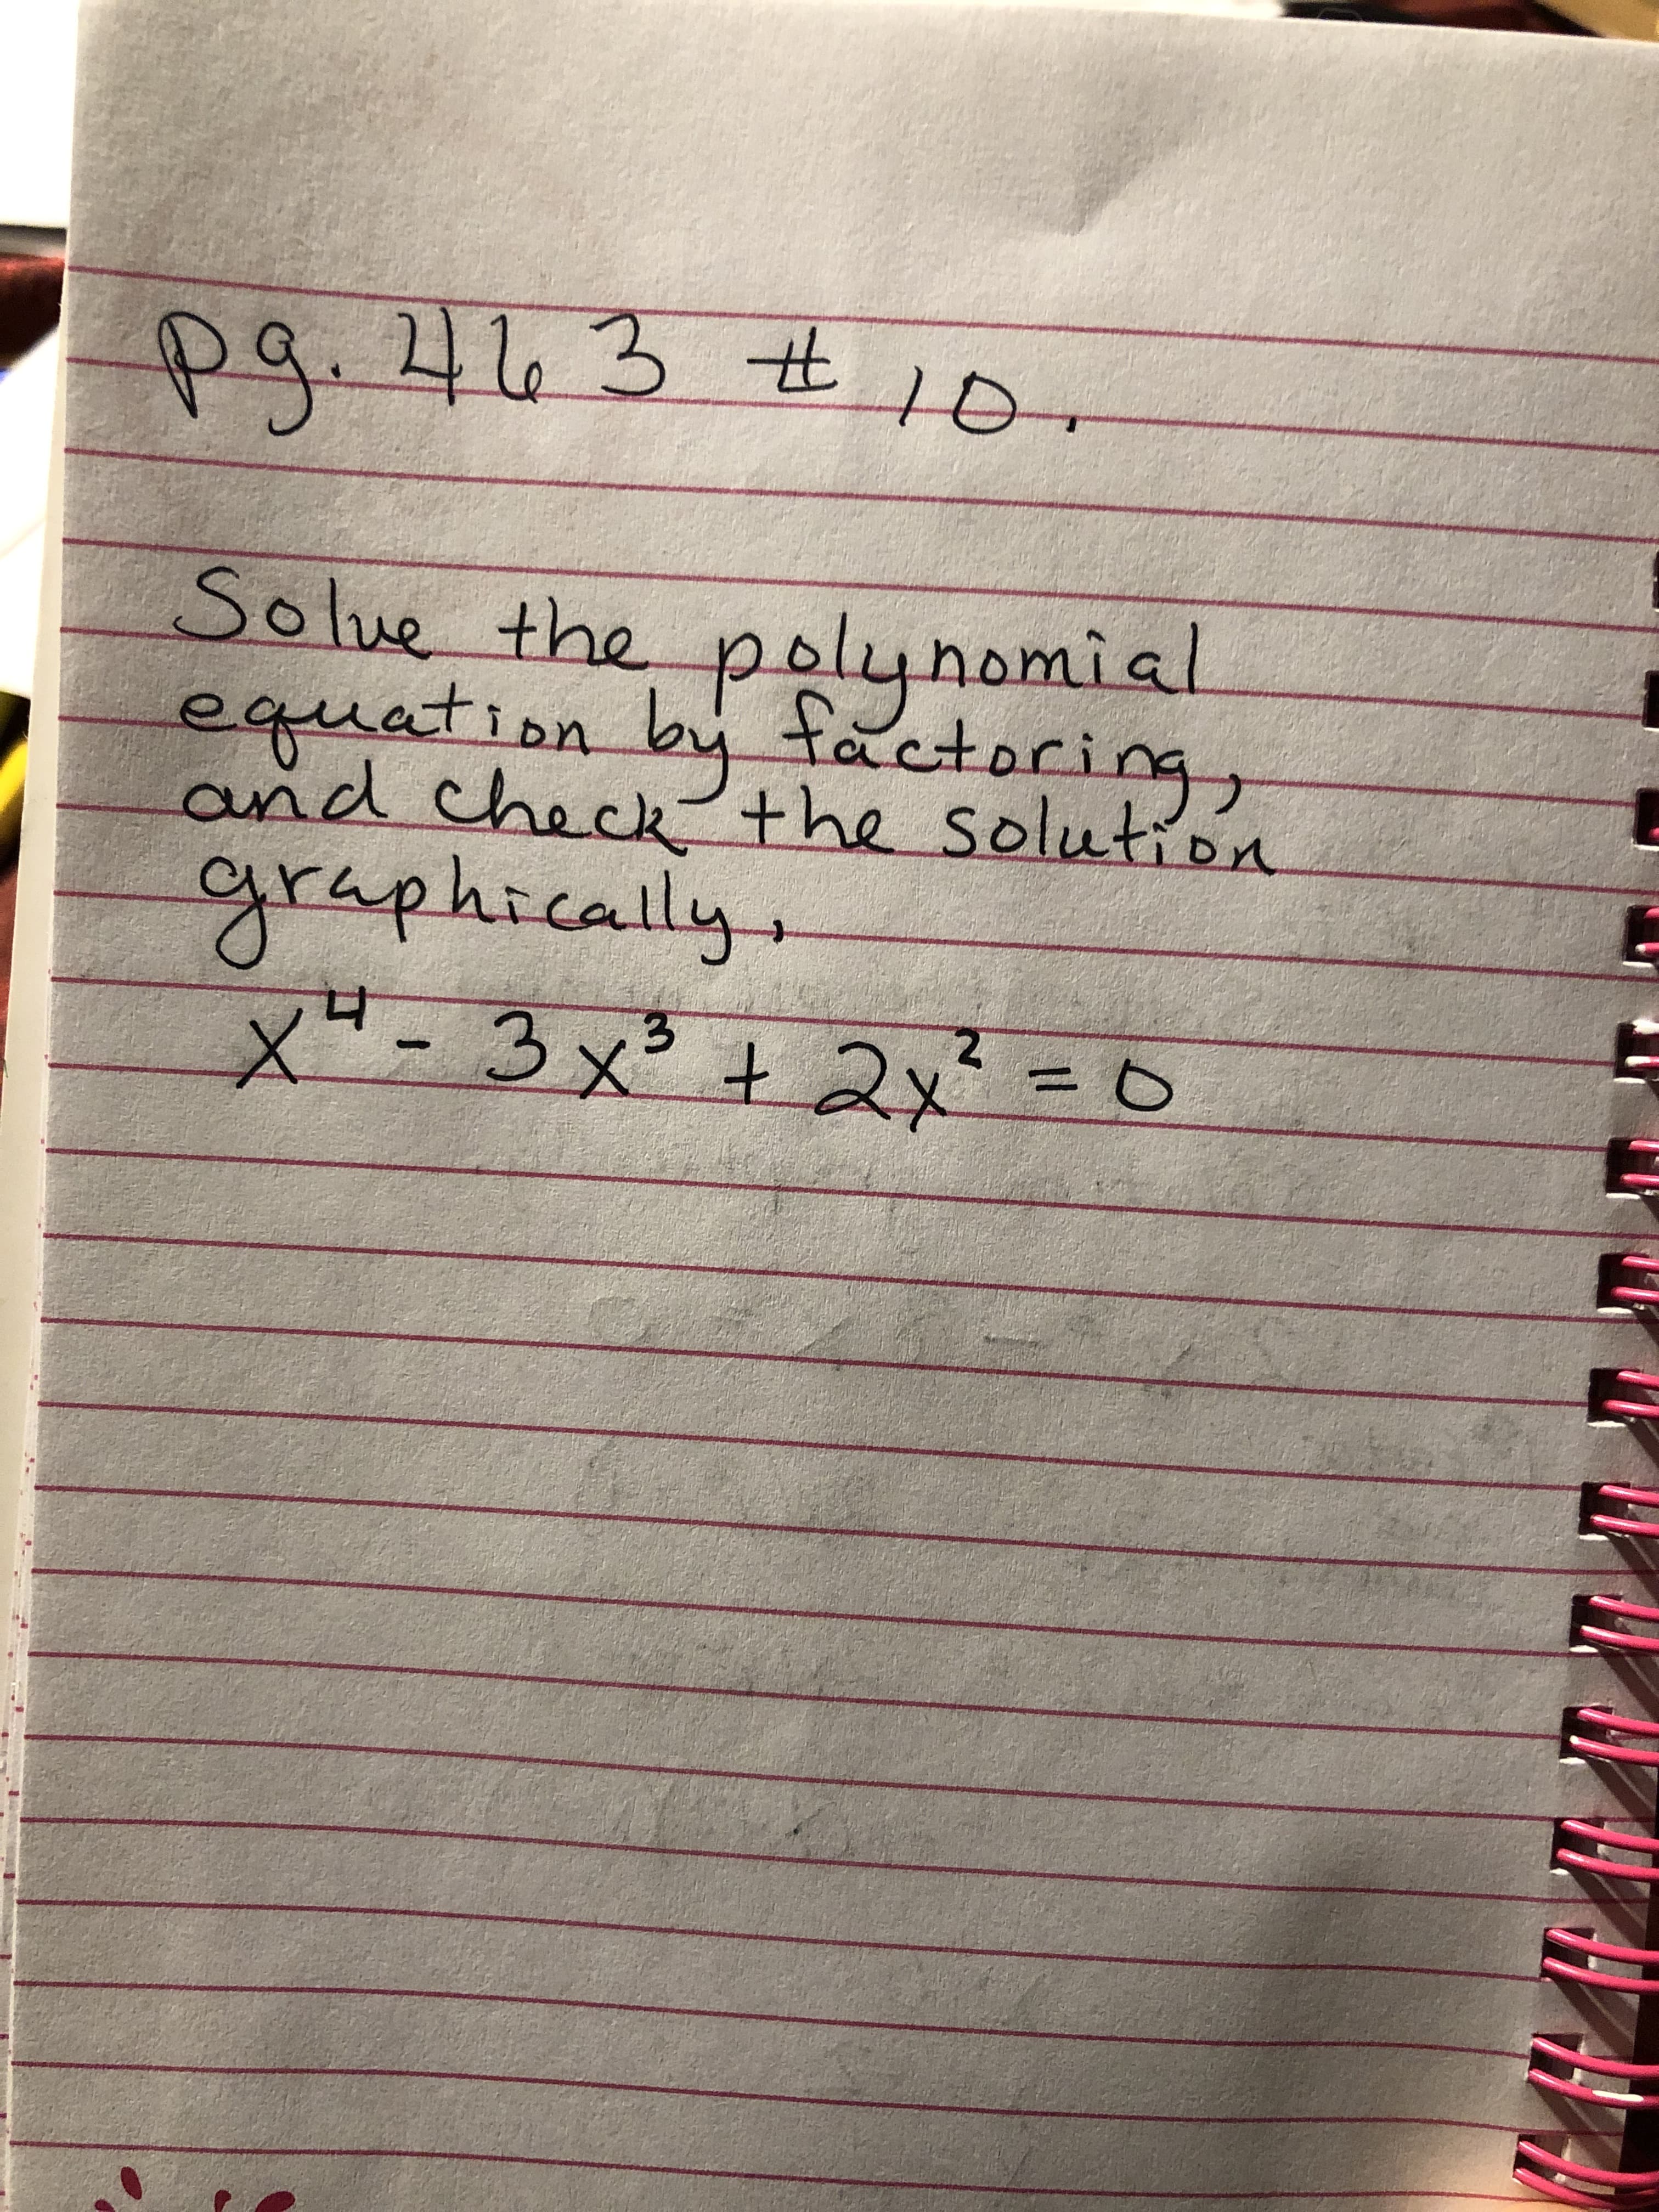 pg. 463 # 10.
Solve the polynomial
equation by factoring,
and check the solution
graphically,
x⁴ - 3x³ + 2x² = 0